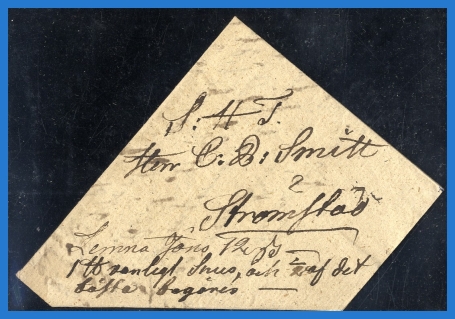 S: H T.
Herr C. B: Smitt
i
Strömstad
Lemna Jöns
1 ℔ vanligt Snus, och ½ af det
bästa begäres —